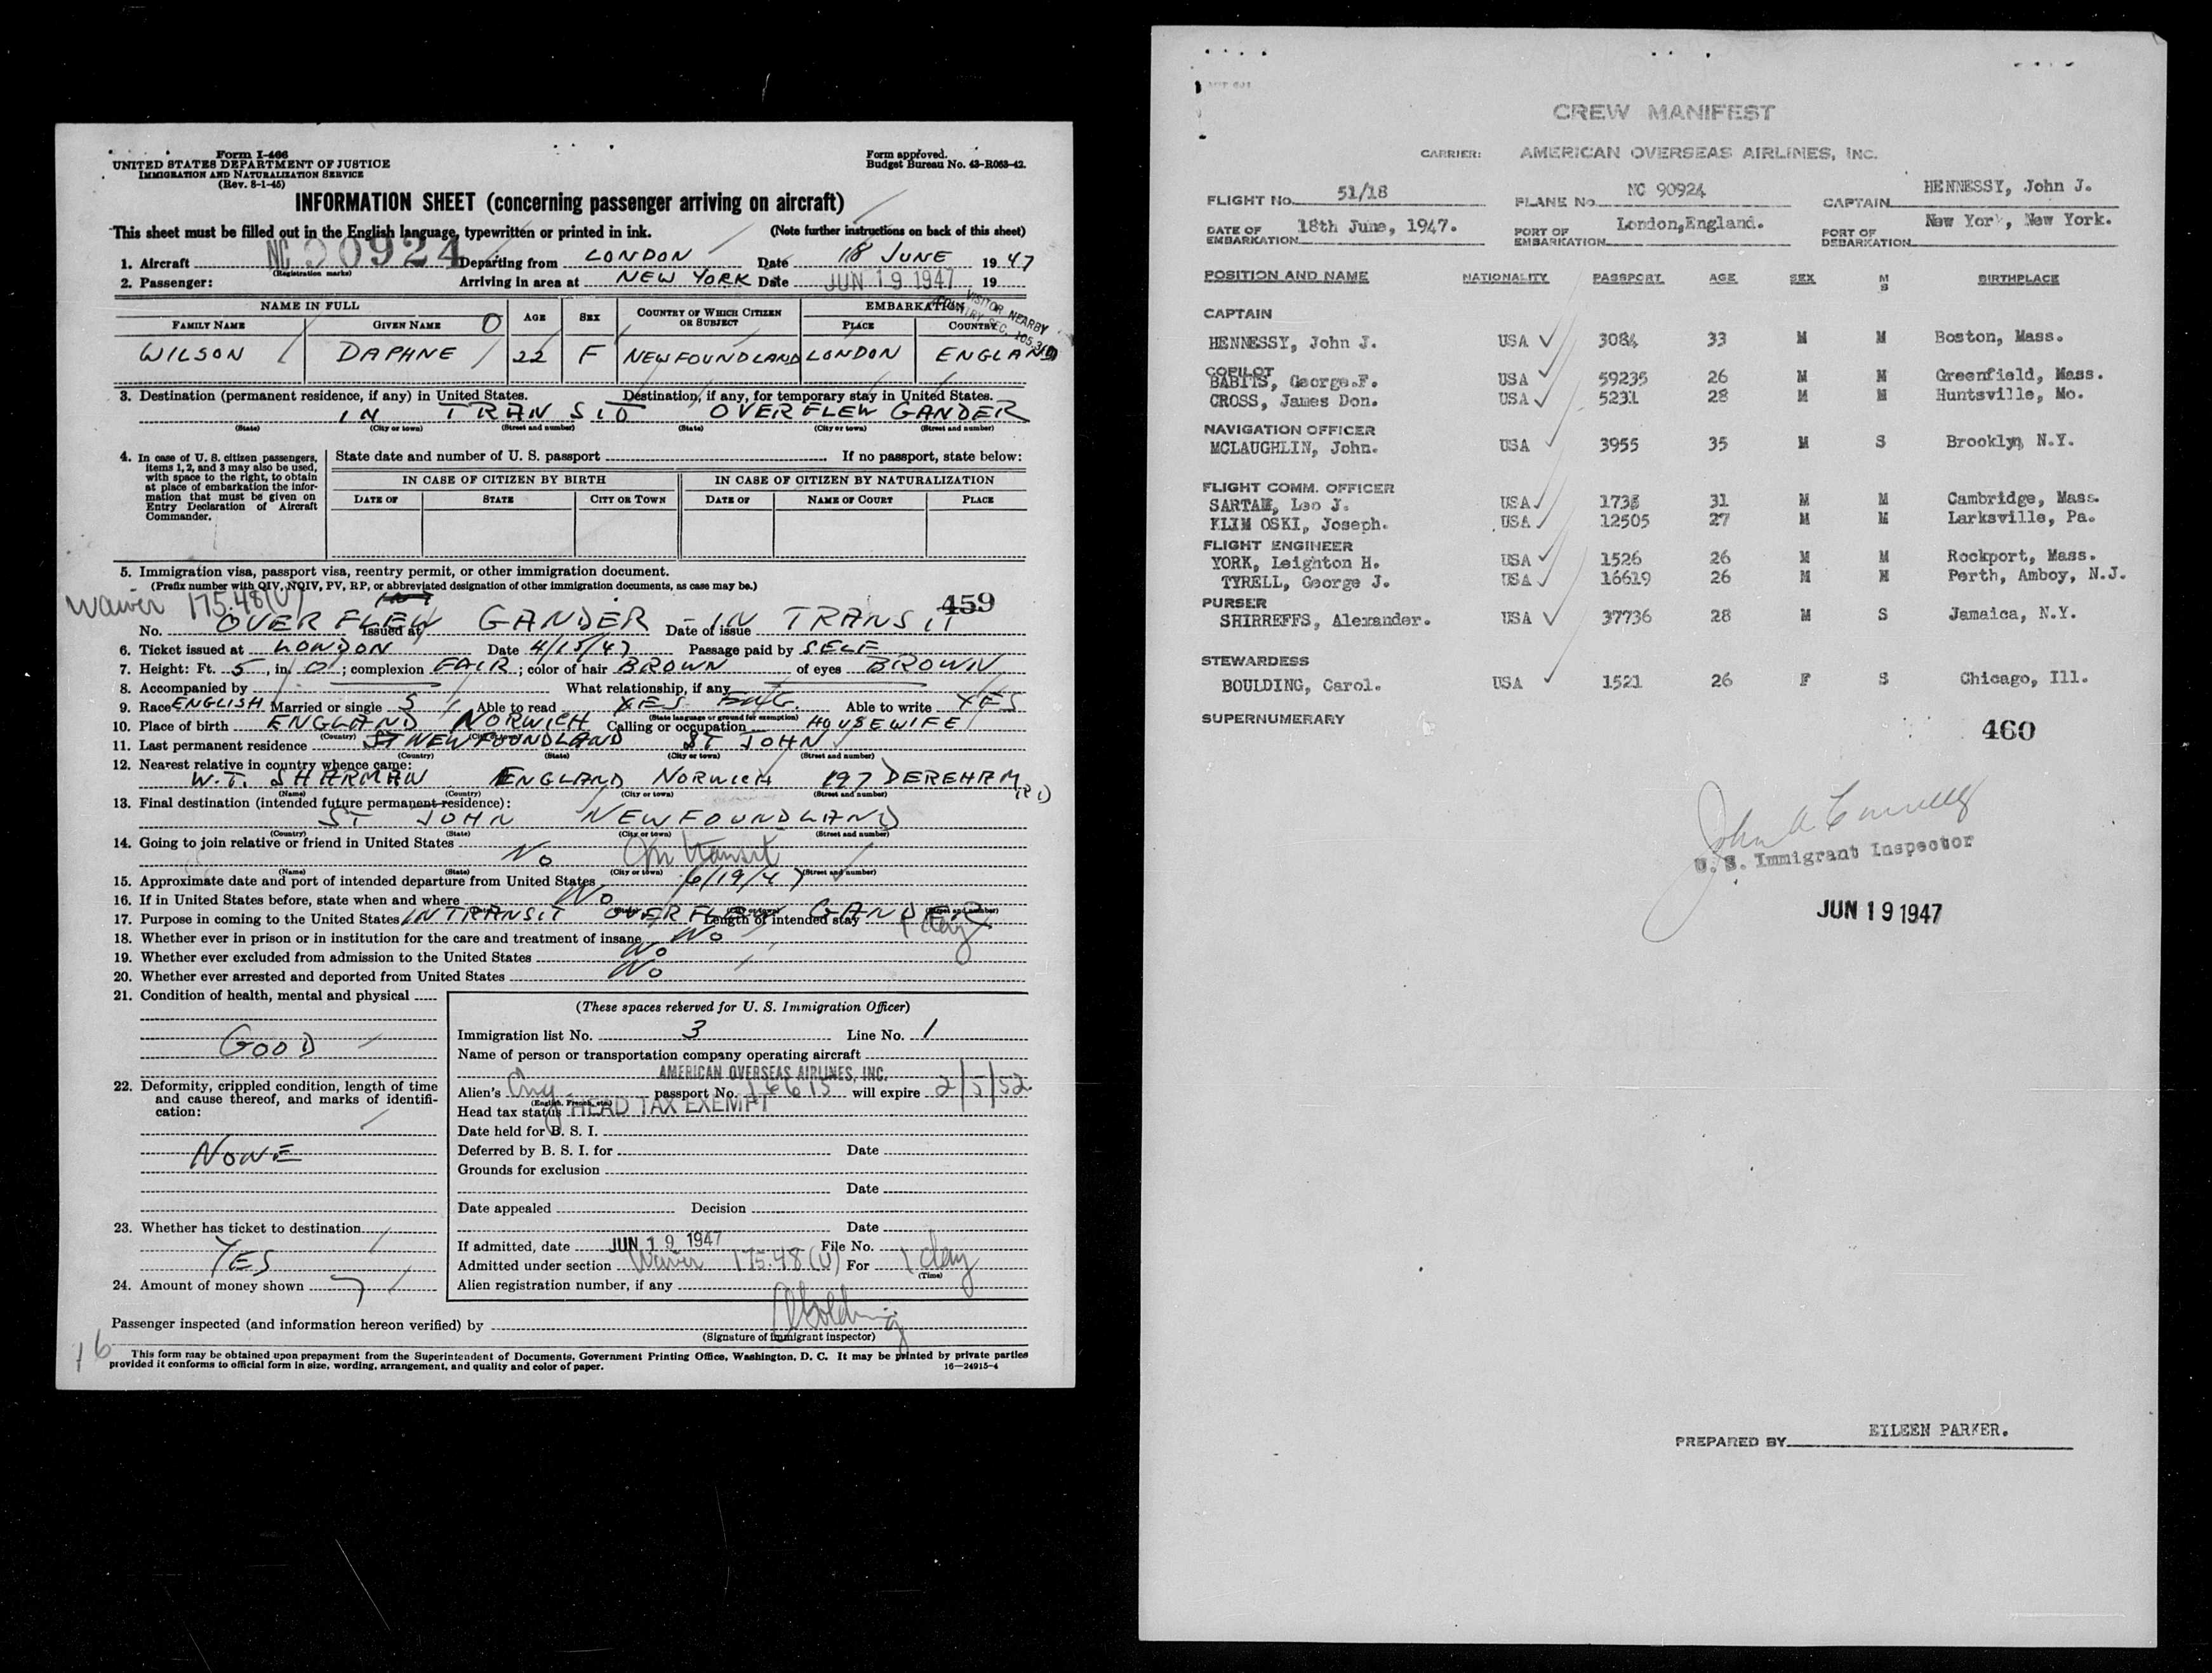 Form I-466
UNITED STATES DEPARTMENT OF JUSTICE
IMMIGRATION AND NATURALIZATION SERVICE
(Rev. 8-1-45)
Form approved.
Budget Bureau No. 43-R063-42.
INFORMATION SHEET (concerning passenger arriving on aircraft)
This sheet must be filled out in the English language, typewritten or printed in ink. (Note further instructions on back of this sheet)
1. Aircraft NC 90924 Departing from LONDON Date 18 JUNE 1947
(Registration marks)
2. Passenger: Arriving in area at NEW YORK Date JUN 19 1947 19
NAME IN FULL AGE SEX COUNTRY OF WHICH CITIZEN OR SUBJECT EMBARKATION
FAMILY NAME GIVEN NAME PLACE COUNTRY
VISITOR NEARBY
COUNTRY SEC. 105.3(b)
WILSON DAPHNE 22 F NEWFOUNDLAND LONDON ENGLAND
3. Destination (permanent residence, if any) in United States. Destination, if any, for temporary stay in United States.
IN TRANSIT OVERFLEW GANDER
(State) (City or town) (Street and number) (State) (City or town) (Street and number)
4. In case of U. S. citizen passengers, items 1, 2, and 3 may also be used, with space to the right, to obtain at place of embarkation the information that must be given on Entry Declaration of Aircraft Commander.
State date and number of U. S. passport If no passport, state below:
IN CASE OF CITIZEN BY BIRTH IN CASE OF CITIZEN BY NATURALIZATION
DATE OF STATE CITY OR TOWN DATE OF NAME OF COURT PLACE
5. Immigration visa, passport visa, reentry permit, or other immigration document.
(Prefix number with QIV, NQIV, PV, RP, or abbreviated designation of other immigration documents, as case may be.)
Waiver 175.48(U) 459
No. OVER FLEW Issued at GANDER - IN Date of issue TRANSIT
6. Ticket issued at LONDON Date 4/15/47 Passage paid by SELF
7. Height: Ft. 5, in. 0; complexion FAIR; color of hair BROWN of eyes BROWN
8. Accompanied by What relationship, if any
9. Race ENGLISH Married or single S Able to read YES ENG. Able to write YES
(State language or ground for exemption)
10. Place of birth ENGLAND NORWICH Calling or occupation HOUSEWIFE
(Country) (City or town)
11. Last permanent residence NEWFOUNDLAND ST JOHN
(Country) (State) (City or town) (Street and number)
12. Nearest relative in country whence came:
W.T. SHARMAN ENGLAND NORWICH 197 DEREHAM
(Name) (Country) (City or town) (Street and number)
13. Final destination (intended future permanent residence):
ST JOHN NEWFOUNDLAND
(Country) (State) (City or town) (Street and number)
14. Going to join relative or friend in United States
No In transit
(Name) (State) (City or town) (Street and number)
15. Approximate date and port of intended departure from United States 6/19/47
16. If in United States before, state when and where No
17. Purpose in coming to the United States IN TRANSIT OVERFLEW GANDER Length of intended stay 1 day
18. Whether ever in prison or in institution for the care and treatment of insane No
19. Whether ever excluded from admission to the United States No
20. Whether ever arrested and deported from United States No
21. Condition of health, mental and physical
GOOD
22. Deformity, crippled condition, length of time and cause thereof, and marks of identification:
NONE
23. Whether has ticket to destination
YES
24. Amount of money shown 7
(These spaces reserved for U. S. Immigration Officer)
Immigration list No. 3 Line No. 1
Name of person or transportation company operating aircraft
AMERICAN OVERSEAS AIRLINES, INC.
Alien's Eng passport No. 16615 will expire 2/5/52
(English, French, etc.)
Head tax status HEAD TAX EXEMPT
Date held for B. S. I.
Deferred by B. S. I. for Date
Grounds for exclusion
Date
Date appealed Decision
Date
If admitted, date JUN 19 1947 File No.
Admitted under section Waiver 175.48(U) For 1 day
(Time)
Alien registration number, if any
Passenger inspected (and information hereon verified) by
(Signature of immigrant inspector)
16
This form may be obtained upon prepayment from the Superintendent of Documents, Government Printing Office, Washington, D. C. It may be printed by private parties
provided it conforms to official form in size, wording, arrangement, and quality and color of paper. 16—24915-4
CREW MANIFEST
CARRIER: AMERICAN OVERSEAS AIRLINES, INC.
FLIGHT No. 51/18 PLANE No. NC 90924 CAPTAIN HENNESSY, John J.
DATE OF EMBARKATION 18th June, 1947. PORT OF EMBARKATION London,England. PORT OF DEBARKATION New York, New York.
POSITION AND NAME NATIONALITY PASSPORT AGE SEX M S BIRTHPLACE
CAPTAIN
HENNESSY, John J. USA 3084 33 M M Boston, Mass.
COPILOT
BABITS, George.F. USA 59235 26 M M Greenfield, Mass.
CROSS, James Don. USA 5231 28 M M Huntsville, Mo.
NAVIGATION OFFICER
MCLAUGHLIN, John. USA 3955 35 M S Brooklyn, N.Y.
FLIGHT COMM. OFFICER
SARTAM, Leo J. USA 1738 31 M M Cambridge, Mass.
KLIM OSKI, Joseph. USA 12505 27 M M Larksville, Pa.
FLIGHT ENGINEER
YORK, Leighton H. USA 1526 26 M M Rockport, Mass.
TYRELL, George J. USA 16619 26 M M Perth, Amboy, N.J.
PURSER
SHIRREFFS, Alexander. USA 37736 28 M S Jamaica, N.Y.
STEWARDESS
BOULDING, Carol. USA 1521 26 F S Chicago, Ill.
SUPERNUMERARY
460
U. S. Immigrant Inspector
JUN 19 1947
PREPARED BY EILEEN PARKER.